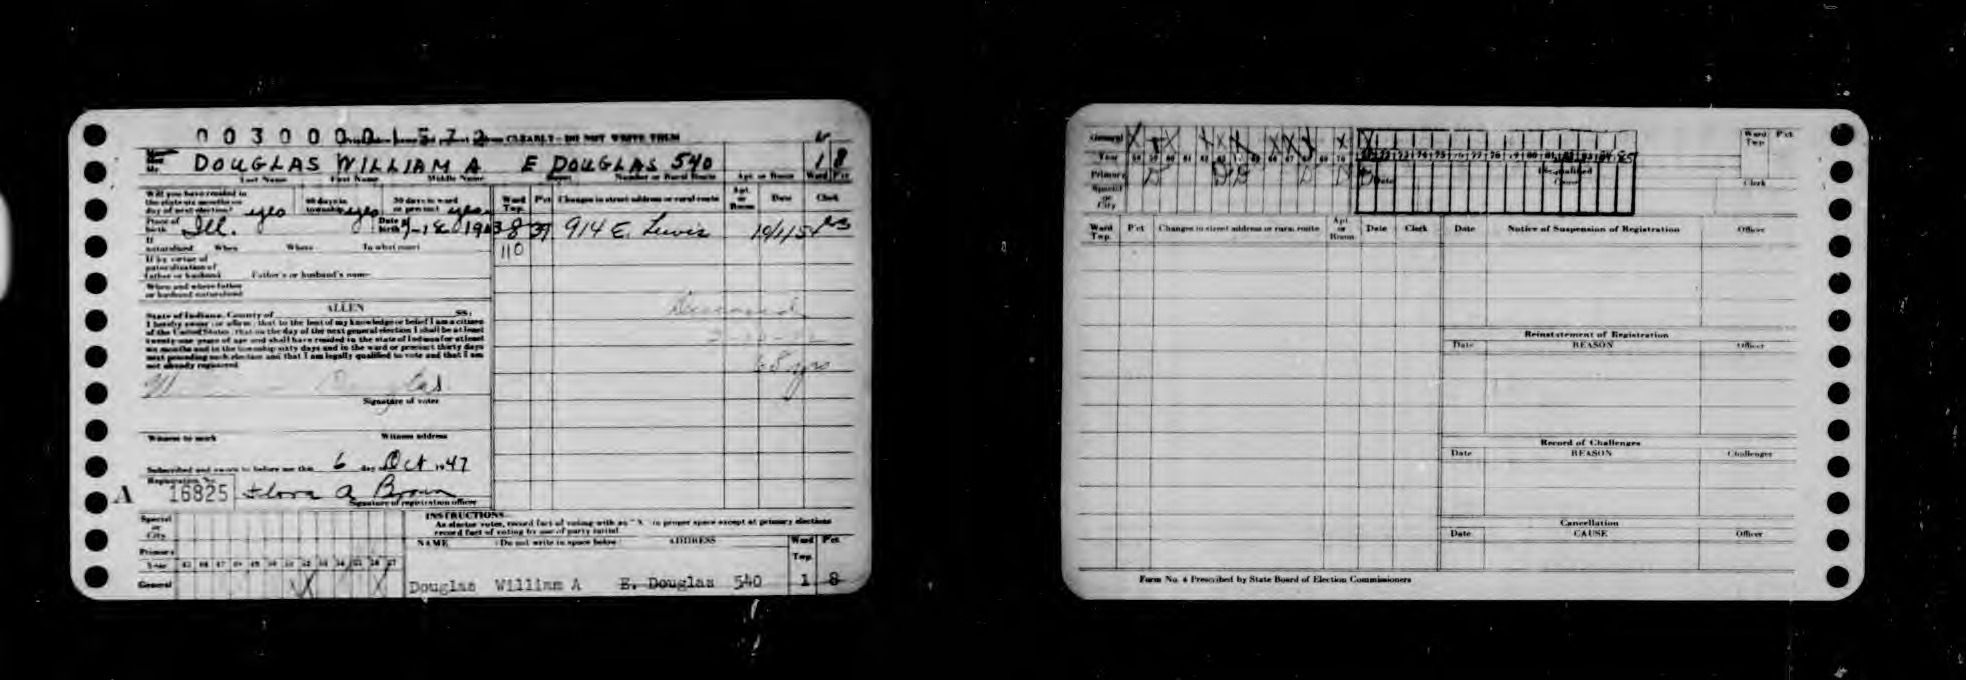 003000015 7 2 CLEARLY - DO NOT WRITE THEM
DOUGLAS WILLIAM A E DOUGLAS 540 1 8
Last Name First Name Middle Name Street Number or Rural Route Apt. or Room Ward Pct
Will you have resided in the state six months on day of next election? yes 60 days in township yes 30 days in ward or precinct yes
Ward Twp. Pct Changes in street address or rural route Apt. or Room Date Clerk
Place of birth Ill. Date of birth
8 39 914 E. Lewis
110
If naturalized When Where In what court
If by virtue of naturalization of father or husband Father's or husband's name
When and where father or husband naturalized
Deceased
68 yrs
State of Indiana, County of ALLEN SS:
I hereby swear (or affirm) that to the best of my knowledge or belief I am a citizen
of the United States; that on the day of the next general election I shall be at least
twenty-one years of age and shall have resided in the state of Indiana for at least
six months and in the township sixty days and in the ward or precinct thirty days
next preceding such election and that I am legally qualified to vote and that I am
not already registered
Douglas
Signature of voter
Witness to mark Witness address
Subscribed and sworn to before me this 6 day Oct 1947
Registration No. A 16825 Flora A Brown
Signature of registration officer
INSTRUCTIONS
As elector votes, record fact of voting with an "X" in proper space except at primary elections
record fact of voting by use of party initial
Special or City
Primary
Year
General X X
NAME (Do not write in space below) ADDRESS Ward Twp. Pct.
Douglas William A E. Douglas 540 1 8
General
Year
Primary
Special or City
Date Disqualified Cause
Ward Twp Pct
Clerk
Ward Twp. Pct Changes in street address or rural route Apt. or Room Date Clerk
Date Notice of Suspension of Registration Officer
Reinstatement of Registration
Date REASON Officer
Record of Challenges
Date REASON Challenger
Cancellation
Date CAUSE Officer
Form No. 4 Prescribed by State Board of Election Commissioners